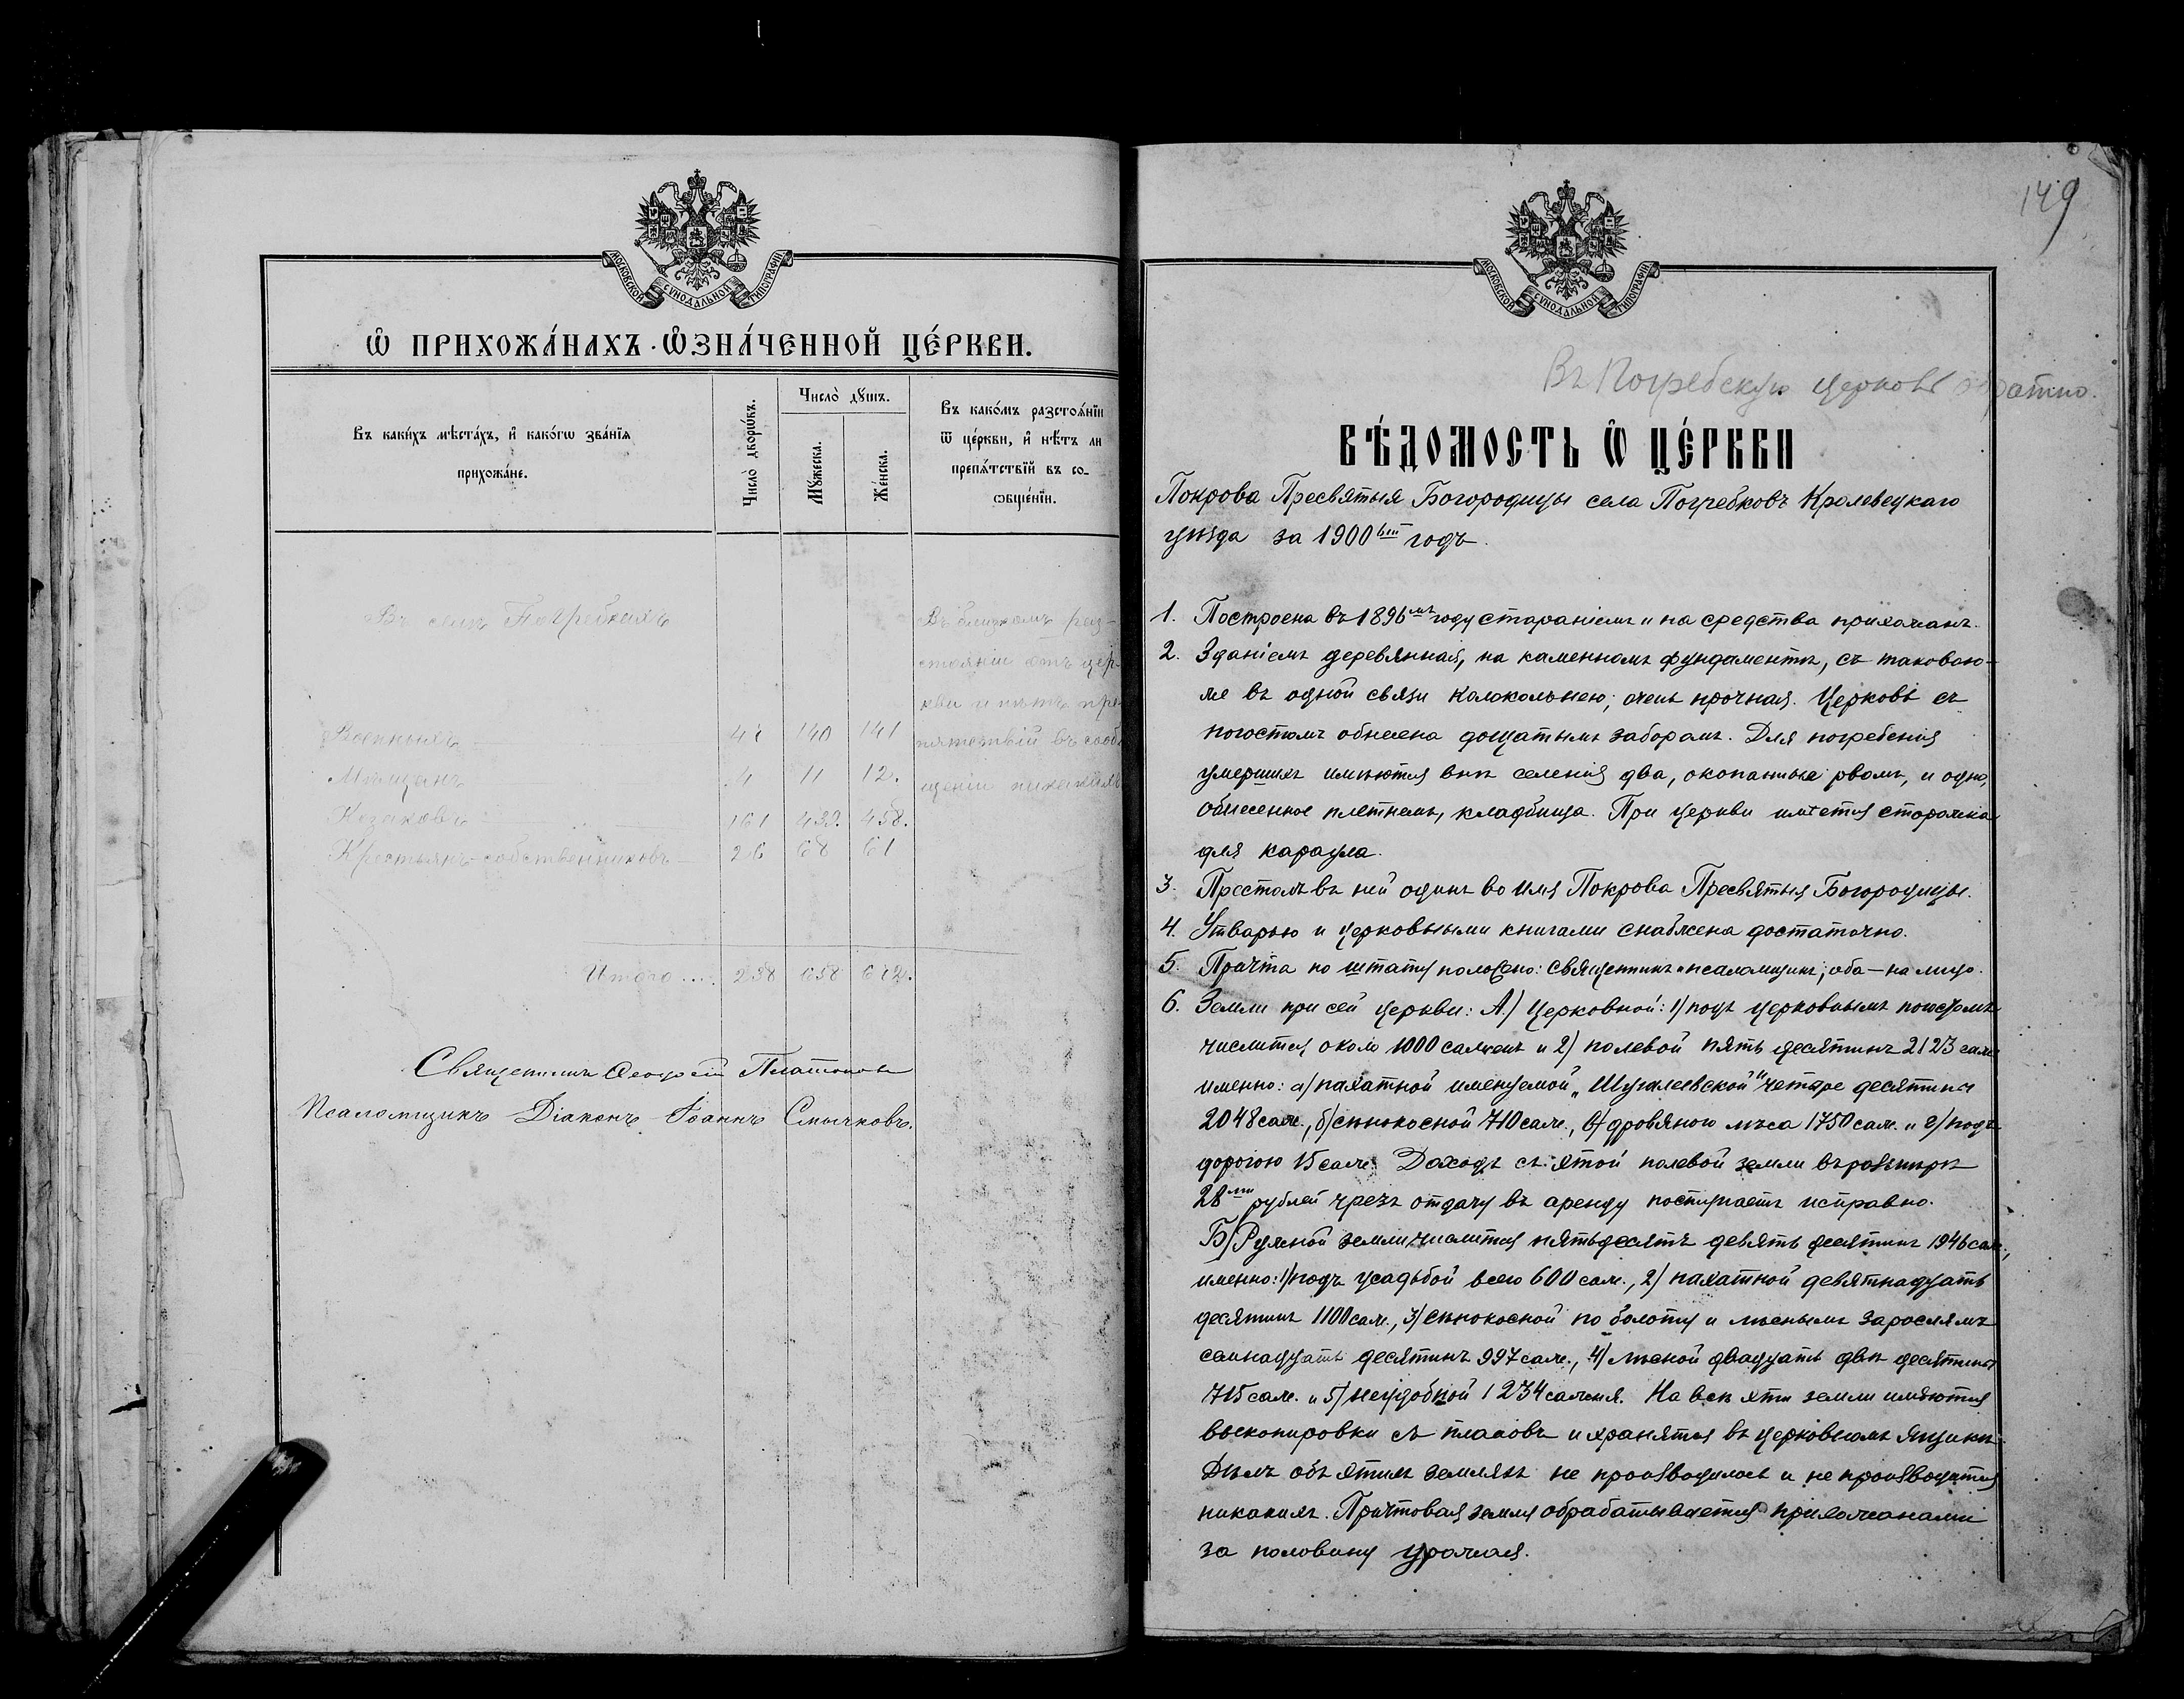 МОСКОВСКОЙ СѴНОДАЛЬНОЙ ТИПОГРАФІИ
Ѽ ПРИХОЖА́НАХЪ ѼЗНА́ЧЕННОЙ ЦЕ́РКВИ.
Въ каки́хъ мѣста́хъ, и҆ како́гѡ зва́нїѧ прихожа́не.
Число̀ дворѡ́въ.
Число̀ дꙋ́шъ.
Мꙋ́жеска.
Же́нска.
Въ како́мъ разстоѧ́нїи
ѿ це́ркви, и҆ нѣ́тъ ли
препѧ́тствїй въ со-
ѻбще́нїи.
Въ селѣ Погребкахъ
Въ близкомъ раз-
стояніи отъ цер-
кви и нѣтъ пре-
пятствій въ сооб-
щеніи никакихъ
Военныхъ — 47 140 141
Мѣщанъ 4 11 12.
Козаковъ — 161 439. 458.
Крестьянъ-собственниковъ — 26 68 61
Итого .... 238 658 672.
Священникъ Ѳеодосій Платоновъ
Псаломщикъ Діаконъ Іоаннъ Смычковъ.
149
МОСКОВСКОЙ СѴНОДАЛЬНОЙ ТИПОГРАФІИ
Въ Погребскую церковь обратно.
ВѢ́ДОМОСТЬ Ѽ ЦЕ́РКВИ
Покрова Пресвятыя Богородицы села Погребковъ Кролевецкаго
уѣзда за 1900ый годъ.
1. Построена въ 1896мъ году стараніемъ и на средства прихожанъ.
2. Зданіемъ деревянная, на каменномъ фундаментѣ, съ таковою-
же въ одной связи колокольнею; очень прочная. Церковь съ
погостомъ обнесена дощатымъ заборомъ. Для погребенія
умершихъ имѣются внѣ селенія два, окопанные рвомъ, и одно,
обнесенное плетнемъ, кладбища. При церкви имѣется сторожка
для караула.
3. Престолъ въ ней одинъ во имя Покрова Пресвятыя Богородицы.
4. Утварью и церковными книгами снабжена достаточно.
5. Причта по штату положено: священникъ и псаломщикъ; оба — на лицо.
6. Земли при сей церкви: А) Церковной: 1) подъ церковнымъ погостомъ
числится около 1000 саженъ и 2) полевой пять десятинъ 2123 саж.
именно: а) пахатной именуемой „Шугалеевской" четыре десятины
2048 саж., б) сѣнокосной 710 саж., в) дровяного лѣса 1750 саж. и г) подъ
дорогою 15 саж. Доходъ съ этой полевой земли въ размѣрѣ
28ми рублей чрезъ отдачу въ аренду поступаетъ исправно.
Б) Ружной земли числится пятьдесятъ девять десятинъ 1946 саж.,
именно: 1) подъ усадьбой всего 600 саж., 2) пахатной девятнадцать
десятинъ 1100 саж., 3) сѣнокосной по болоту и лѣснымъ зарослямъ
семнадцать десятинъ 997 саж., 4) лѣсной двадцать двѣ десятины
715 саж. и 5) неудобной 1234 сажня. На всѣ эти земли имѣются
выкопировки съ плановъ и хранятся въ церковномъ ящикѣ.
Дѣлъ объ этихъ земляхъ не производилось и не производится
никакихъ. Причтовая земля обрабатывается прихожанами
за половину урожая.